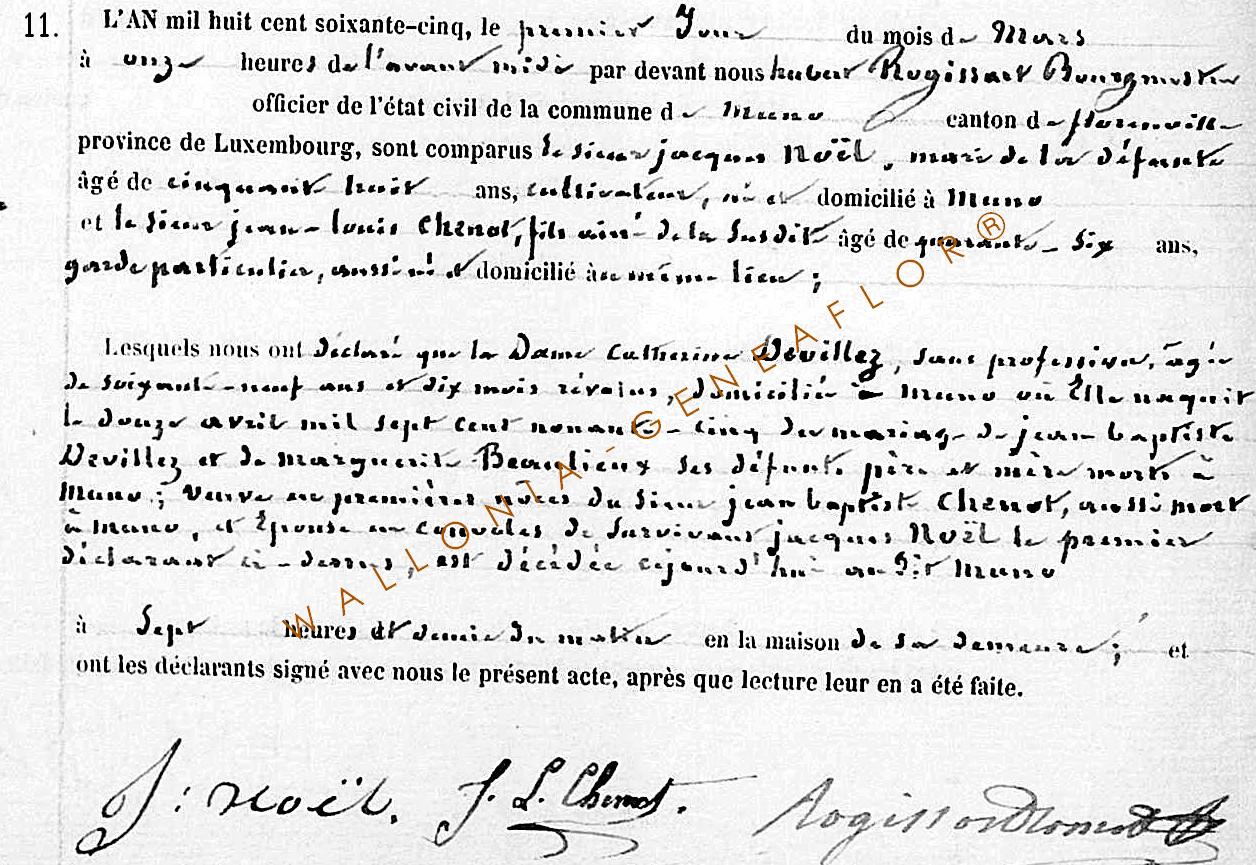 11. L'AN mil huit cent soixante-cinq, le premier Jour du mois de Mars
à onze heures de l'avant midi par devant nous hubert Rogissart Bourgmestre
officier de l'état civil de la commune de Muno canton de florenville
province de Luxembourg, sont comparus le sieur jacques Noël, mari de la défunte
âgé de cinquante huit ans, cultivateur, né et domicilié à Muno
et le sieur jean-louis Chenot, fils ainé de la susdite âgé de quarante-six ans,
garde particulier, aussi né et domicilié au même lieu ;
Lesquels nous ont déclaré que la Dame Catherine Devillez, sans profession, agée
de soixante-neuf ans et dix mois révolus, domiciliée à Muno où Elle naquit
le douze avril mil sept cent nonante-cinq du mariage de jean baptiste
Devillez et de Marguerite Beaulieux ses défunts père et mère morts à
Muno ; veuve en premières nôces du sieur jean baptiste Chenot, aussi mort
à Muno, et Epouse en convoles de survivant jacques Noël le premier
déclarant ci-dessus, est décédée cejourd'hui au dit Muno
à sept heures et demie du matin en la maison de sa demeure ; et
ont les déclarants signé avec nous le présent acte, après que lecture leur en a été faite.
J : Noël. J. L. Chenot. Rogissart
WALLONIA-GENEAFLOR®